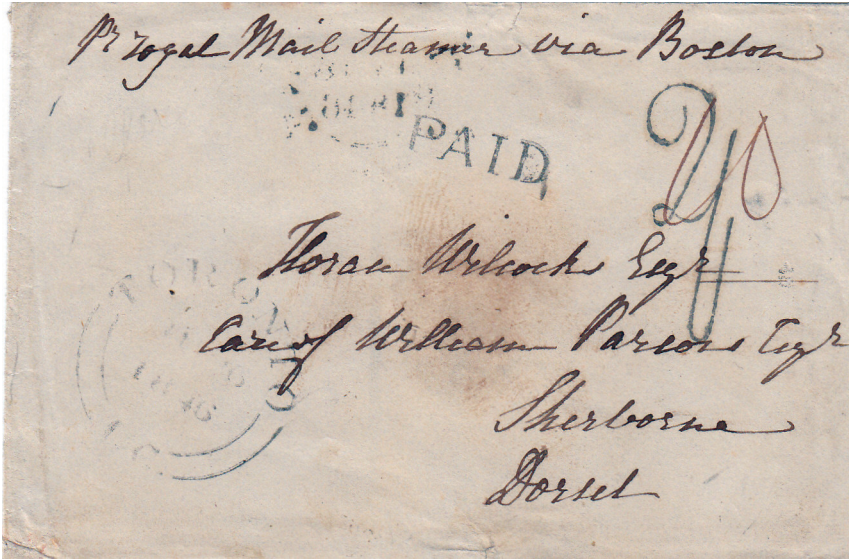 Pr royal Mail Steamer via Boston
PAID
Horau Wilcocks Esqr
Care of William Parsons Esqr
Sherborne
Dorset